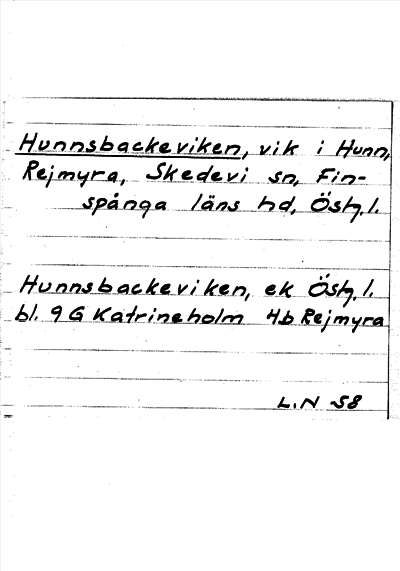 Hunnsbackeviken, vik i Hunn,
Rejmyra, Skedevi sn, Fin-
spånga läns hd, Östg. l.
Hunnsbackeviken, ek Östg. l.
bl. 9 G Katrineholm 4b Rejmyra
L.N 58